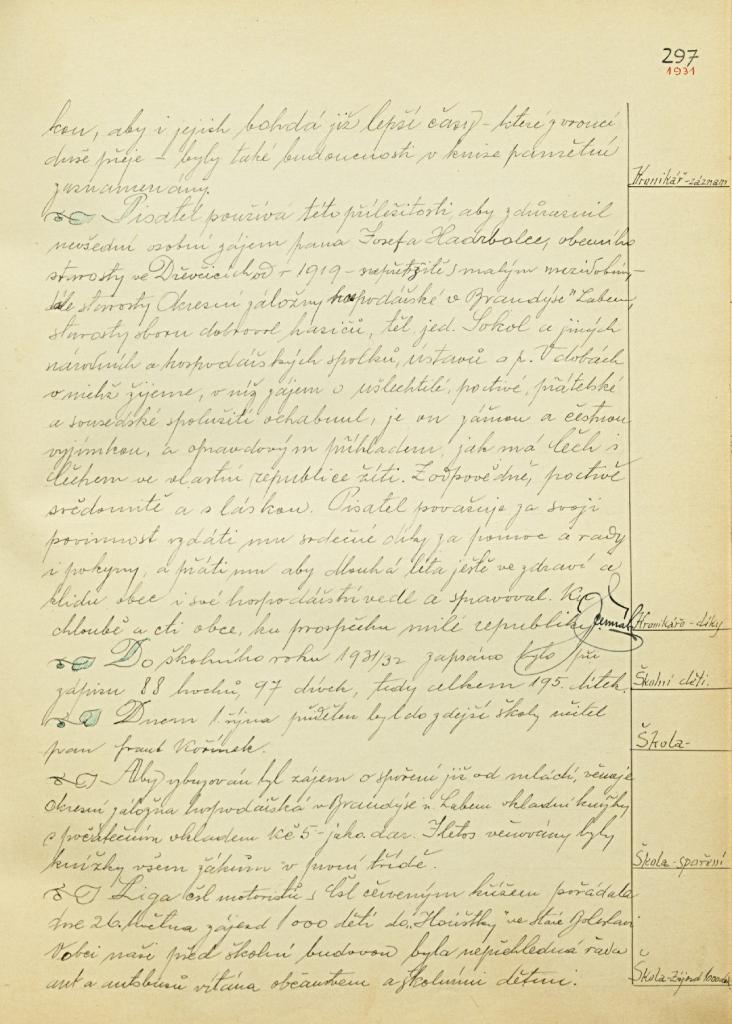 297
1931
kou, aby i jejich bohdá již lepší časy - které zvoucí
duše přeje - byly také budoucnosti v knize pamětní
zaznamenány.
Kronikář-záznam
Pisatel používá této příležitosti, aby zdůraznil
nevšední osobní zájem pana Josefa Hadrbolce, obecního
starosty ve Dřevčicích od r 1919 - nepřetržitě s malým mezidobím -
dále starosty Okresní záložny hospodářské v Brandýse n Labem,
starosty sboru dobrovol. hasičů, těl. jed. Sokol a jiných
národních a hospodářských spolků, ústavů a p. V dobách
v nichž žijeme, v níž zájem o ušlechtilé, poctivé, přátelské
a sousedské spolužití ochabnul, je on a čestnou
vyjímkou, a opravdovým příkladem, jak má Čech s
Čechem ve vlastní republice žíti. Zodpovědně, poctivě
svědomitě a s láskou. Pisatel považuje za svoji
povinnost vzdáti mu srdečné díky za pomoc a rady
i pokyny, a přáti mu aby dlouhá léta ještě ve zdraví a
klidu obec i své hospodářství vedl a spravoval. Ku
chloubě a cti obce, ku prospěchu milé republiky.
Kronikářo-díky
Do školního roku 1931/32 zapsáno bylo při
zápisu 88 hochů, 97 dívek, tedy celkem 195 dítek.
Školní děti.
Dnem 1. října přidělen byl do zdejší školy učitel
pan Frant Kořínek.
Škola-
Aby vybuzován byl zájem o spoření již od mládí, věnuje
Okresní záložna hospodářská v Brandýse n. Labem vkladní knížky
s počátečním vkladem Kč 5 - jako dar. I letos věnovány byly
knížky všem žákům v první třídě.
Škola-spoření
Liga čsl motoristů s Čsl červeným křížem pořádala
dne 26. května zájezd 1000 dětí do "Houštky" ve Staré Boleslavi
V obci naší před školní budovou byla nepřehledná řada
aut a autobusů vítána občanstvem a školními dětmi.
Škola-Zájezd 1000 dětí